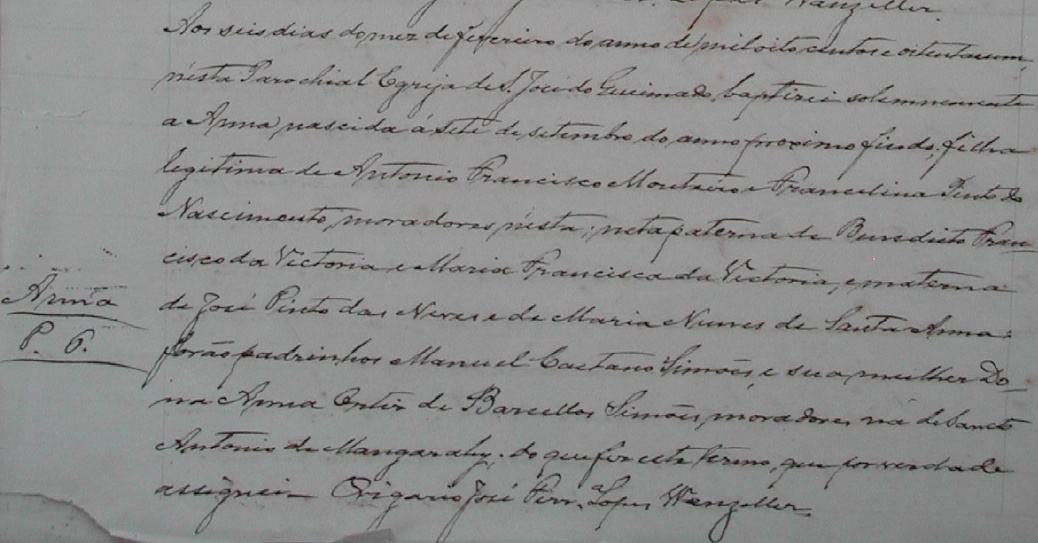 Lopes Wanzeller.
Aos seis dias do mez de fevereiro do anno de mil oito centos e oitenta e um,
n'esta Parochial Egreja de S. José do Queimado, baptizei solemnemente
a Anna, nascida á sete de setembro do anno proximo findo; filha
legitima de Antonio Francisco Monteiro e Francelina Pinto do
Nascimento, moradores n'esta; neta paterna de Benedicto Fran-
cisco da Victoria, e Maria Francisca da Victoria, e materna
Anna
de José Pinto das Neves e de Maria Nunes de Santa Anna:
P. 6.
forão padrinhos Manuel Caetano Simões, e sua mulher Do-
na Anna Ortiz de Barcellos Simões, moradores na de Sancto
Antonio de Mangarahy. do que fiz este termo, que por verdade
assignei O Vigario José Ferr.ª Lopes Wanzeller.